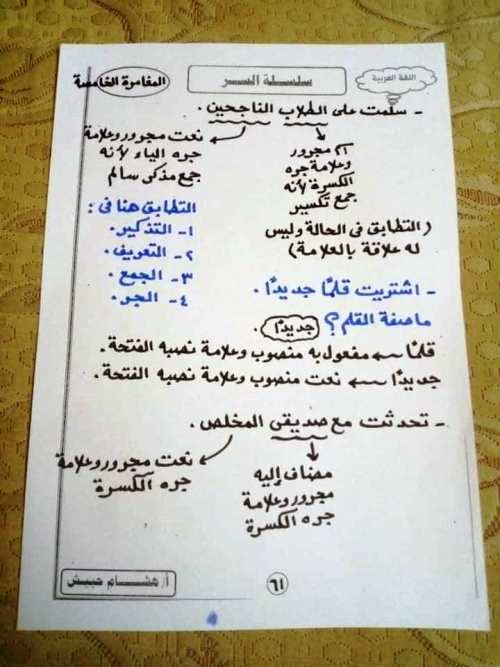 اللغة العربية
سلسلة السر
المغامرة الخامسة
- سلمت على الطلاب الناجحين .
اسم مجرور
وعلامة جره
الكسرة لأنه
جمع تكسير
نعت مجرور وعلامة
جره الياء لأنه
جمع مذكر سالم
(التطابق فى الحالة وليس
له علاقة بالعلامة)
التطابق هنا فى :
١- التذكير.
٢- التعريف.
٣- الجمع.
٤- الجر.
- اشتريت قلمًا جديدًا .
ما صفة القلم؟ جديدًا .
قلمًا ← مفعول به منصوب وعلامة نصبه الفتحة .
جديدًا ← نعت منصوب وعلامة نصبه الفتحة .
- تحدثت مع صديقى المخلص .
مضاف إليه
مجرور وعلامة
جره الكسرة
نعت مجرور وعلامة
جره الكسرة
٦١
أ/ هشام حبيش